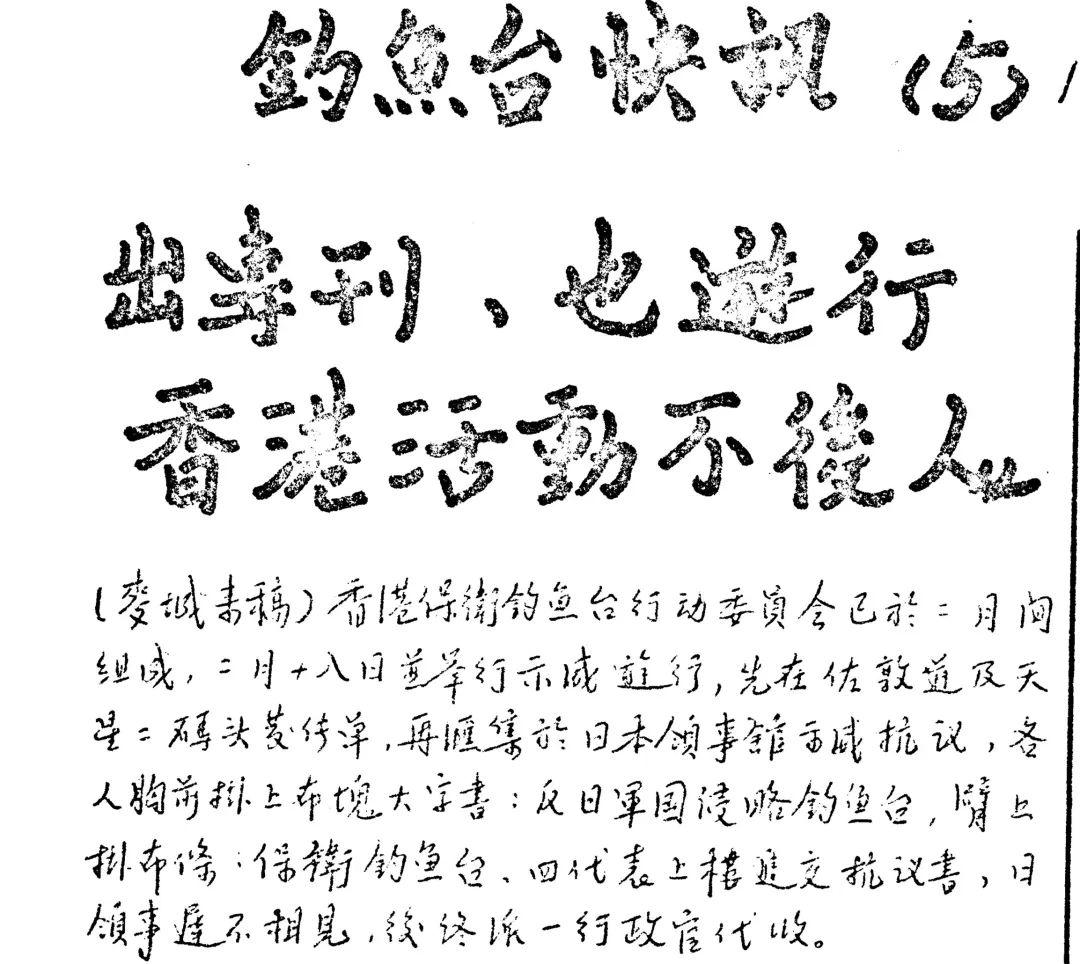 釣魚台快訊 (5)
出專刊、也遊行
香港活動不後人
(麥城來稿)香港保衛釣魚台行动委員会已於二月间
組成，二月十八日並举行示威遊行，先在佐敦道及天
星二碼头发传单，再匯集於日本領事館示威抗议，各
人胸前掛上布塊大字書：反日軍国侵略釣魚台，臂上
掛布條：保衛釣魚台、四代表上樓進交抗议書，日
領事避不相見，後终派一行政官代收。